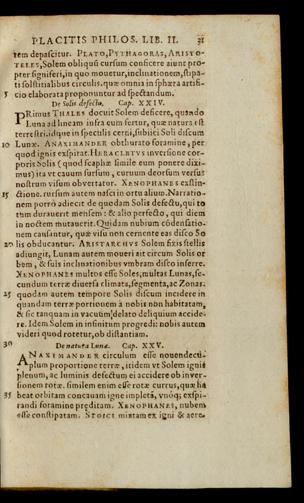 PLACITIS PHILOS. LIB. II. 31
rem depascitur. PLATO, PYTHAGORAS, ARISTO-
TELES, Solem obliquū cursum conficere aiunt pro-
pter signiferi, in quo movetur, inclinationem, stipa-
ti solstitialibus circulis. quæ omnia in sphæra artifi-
5 cio elaborata proponuntur ad spectandum.
De Solis defectu. Cap. XXIV.
PRimus THALES docuit Solem deficere, quando
Luna ad lineam infra eum fertur, quæ natura est
terrestri. idque in speculis cerni, subiici Soli discum
10 Lunæ. ANAXIMANDER obthurato foramine, per
quod ignis exspirat. HERACLETVS inversione cor-
poris Solis (quod scaphæ simile eum ponere dixi-
mus) ita vt cavum sursum, curuum deorsum versus
nostrum visum obvertatur. XENOPHANES exstin-
15 ctione. rursum autem nasci in ortu alium. Narratio-
nem porrò adiecit de quodam Solis defectu, qui to
tum durauerit mensem: & alio perfecto, qui diem
in noctem mutauerit. Quidam nubium cōdensatio-
nem causantur, quæ visu non cernente eas disco So
20 lis obducantur. ARISTARCHVS Solem fixis stellis
adiungit, Lunam autem moueri ait circum Solis or
bem, & suis inclinationibus vmbram disco inferre.
XENOPHANES multos esse Soles, multas Lunas, se-
cundum terræ diuersa climata, segmenta, ac Zonas.
25 quodam autem tempore Solis discum incidere in
quandam terræ portionem à nobis non habitatam,
& sic tanquam in vacuum delato deliquium accide-
re. Idem Solem in infinitum progredi: nobis autem
videri quod rotetur, ob distantiam.
30 De natura Lunæ. Cap. XXV.
ANAXIMANDER circulum esse nouendecu-
plum proportione terræ, itidem vt Solem ignis
plenum, ac luminis defectum ei accidere ob inver-
sionem rotæ. similem enim esse rotæ currus, quæ ha
35 beat orbitam concauam igne impletā, vnóq; exspi-
randi foramine præditam. XENOPHANES, nubem
esse constipatam. STOICI mixtam ex igni & aere.